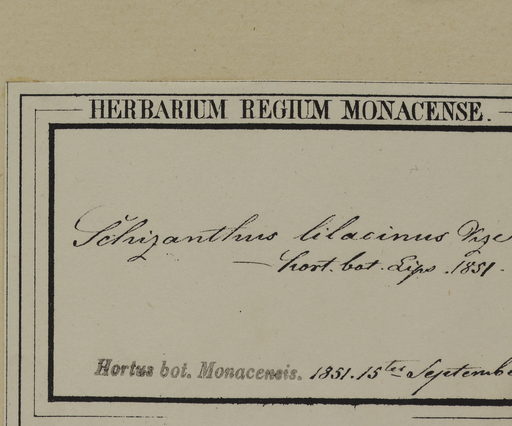 HERBARIUM REGIUM MONACENSE.
Schizanthus lilacinus
— hort. bot. Lips. 1851.
Hortus bot. Monacensis. 1851. 15ter Septembe